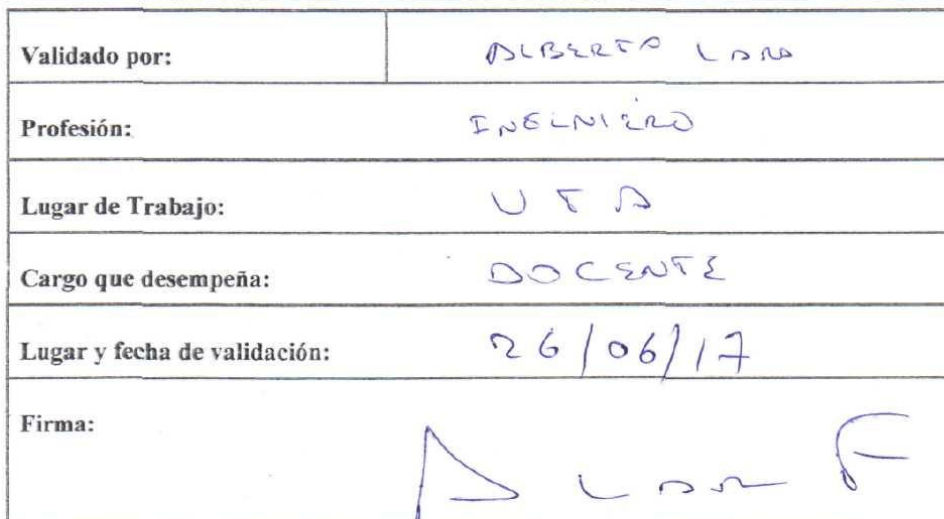 Validado por: ALBERTO LARA
Profesión: INGENIERO
Lugar de Trabajo: UTA
Cargo que desempeña: DOCENTE
Lugar y fecha de validación: 26/06/17
Firma: A Lara F